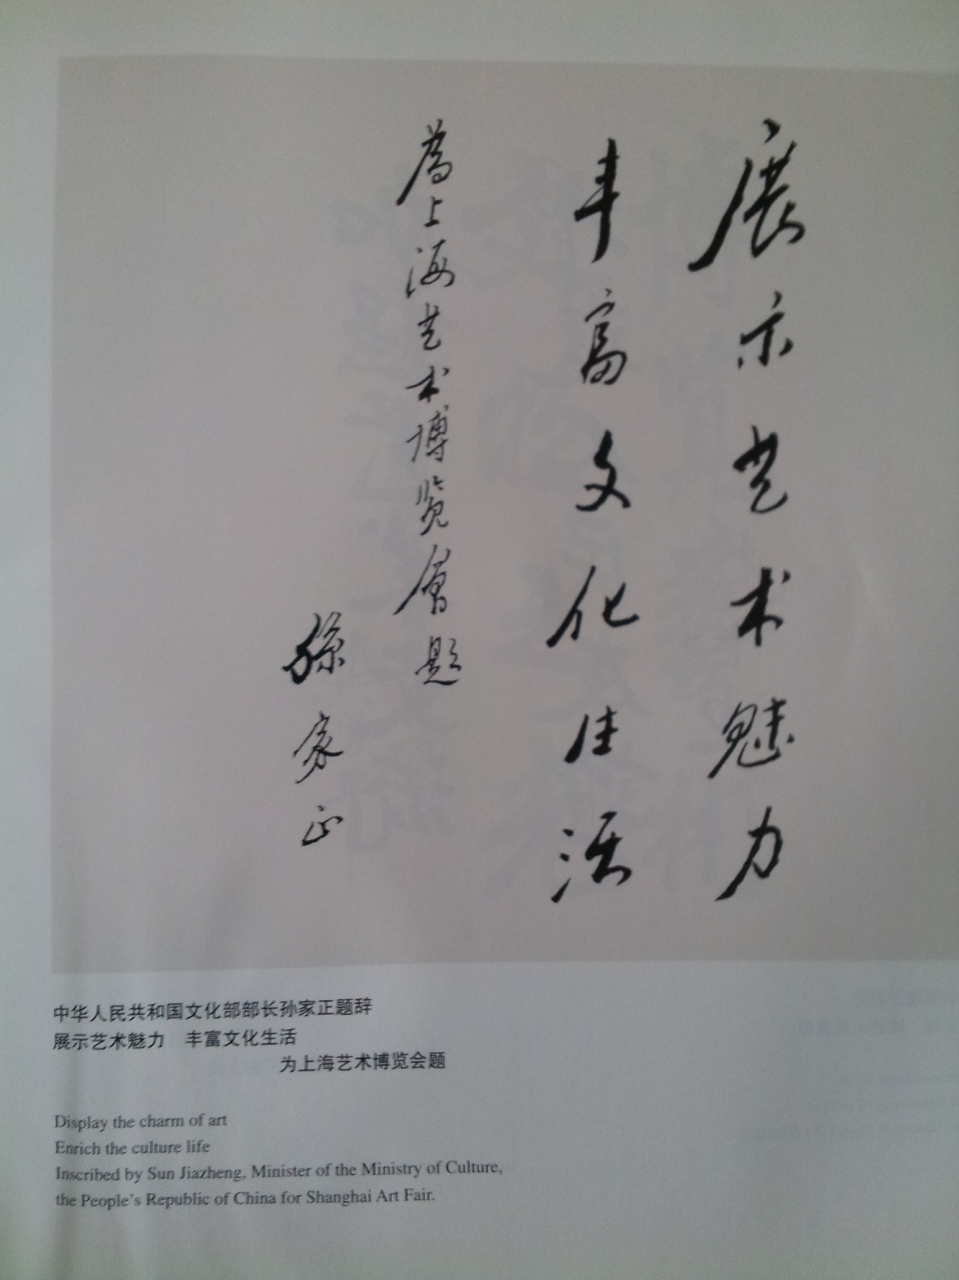 展示艺术魅力
丰富文化生活
為上海艺术博览會题
孫家正
中华人民共和国文化部部长孙家正题辞
展示艺术魅力　丰富文化生活
为上海艺术博览会题
Display the charm of art
Enrich the culture life
Inscribed by Sun Jiazheng, Minister of the Ministry of Culture,
the People's Republic of China for Shanghai Art Fair.